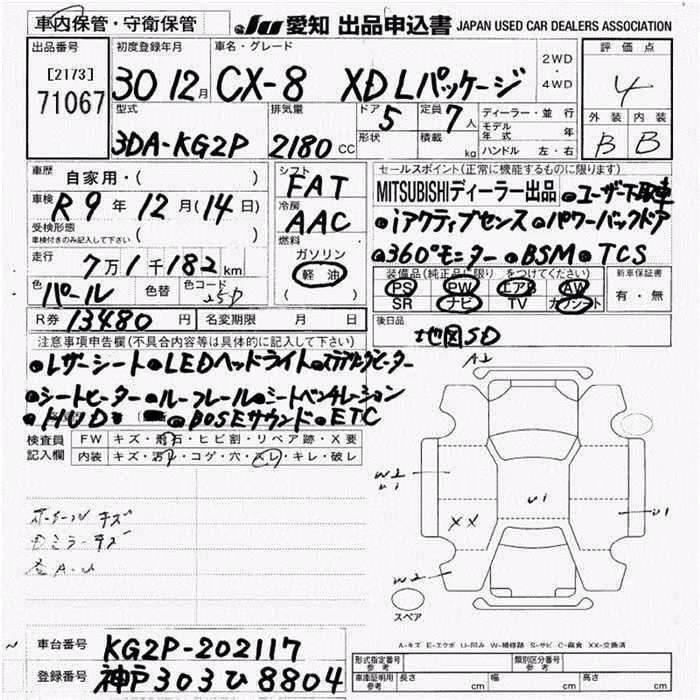 車内保管・守衛保管
JU 愛知 出品申込書 JAPAN USED CAR DEALERS ASSOCIATION
出品番号 初度登録年月 車名・グレード 2WD・4WD 評価点
[2173] 71067 30 12月 CX-8 XD Lパッケージ 4
型式 排気量 ドア 5 定員 7人 ディーラー・並行 外装 内装
3DA-KG2P 2180 CC 形状 積載 kg モデル年式 年 ハンドル 左・右 B B
車歴 自家用・( ) シフト FAT セールスポイント(正常に機能するものに限り)
車検 R9年 12月(14日) 冷房 AAC MITSUBISHIディーラー出品 ●ユーザー下取車
受検形態 車検付きのみ記入して下さい ( ) 燃料 ●iアクティブセンス ●パワーバックドア
走行 7万1千182km ガソリン 軽油 ( ) ●360°モニター ●BSM ●TCS
色 パール 色替 色コード 25D 装備品(純正品に限り をつけてください) 新車保証書
PS PW エアB AW 有・無
SR ナビ TV カワシート
R券 13480円 名変期限 月 日 後日品 地図SD
注意事項申告欄(不具合内容等は具体的に記入して下さい)
●レザーシート ●LEDヘッドライト ●ステアリングヒーター
●シートヒーター ●ルーフレール ●シートベンチレーション
●HUD ●BOSEサウンド ●ETC
検査員記入欄 FW キズ・飛石・ヒビ割・リペア跡・X要
内装 キズ・汚れ・コゲ・穴・スレ・キレ・破レ
A2
W2
U1
U1
U1
XX
W2
ホイールキズ
Dミラーキズ
A.U
スペア
A-キズ E-エクボ U-凹み W-補修跡 S-サビ C-腐食 XX-交換済
車台番号 KG2P-202117
登録番号 神戸303ひ8804
形式指定番号 参考 類別区分番号 参考
車庫証明用 参考 長さ cm 幅 cm 高さ cm